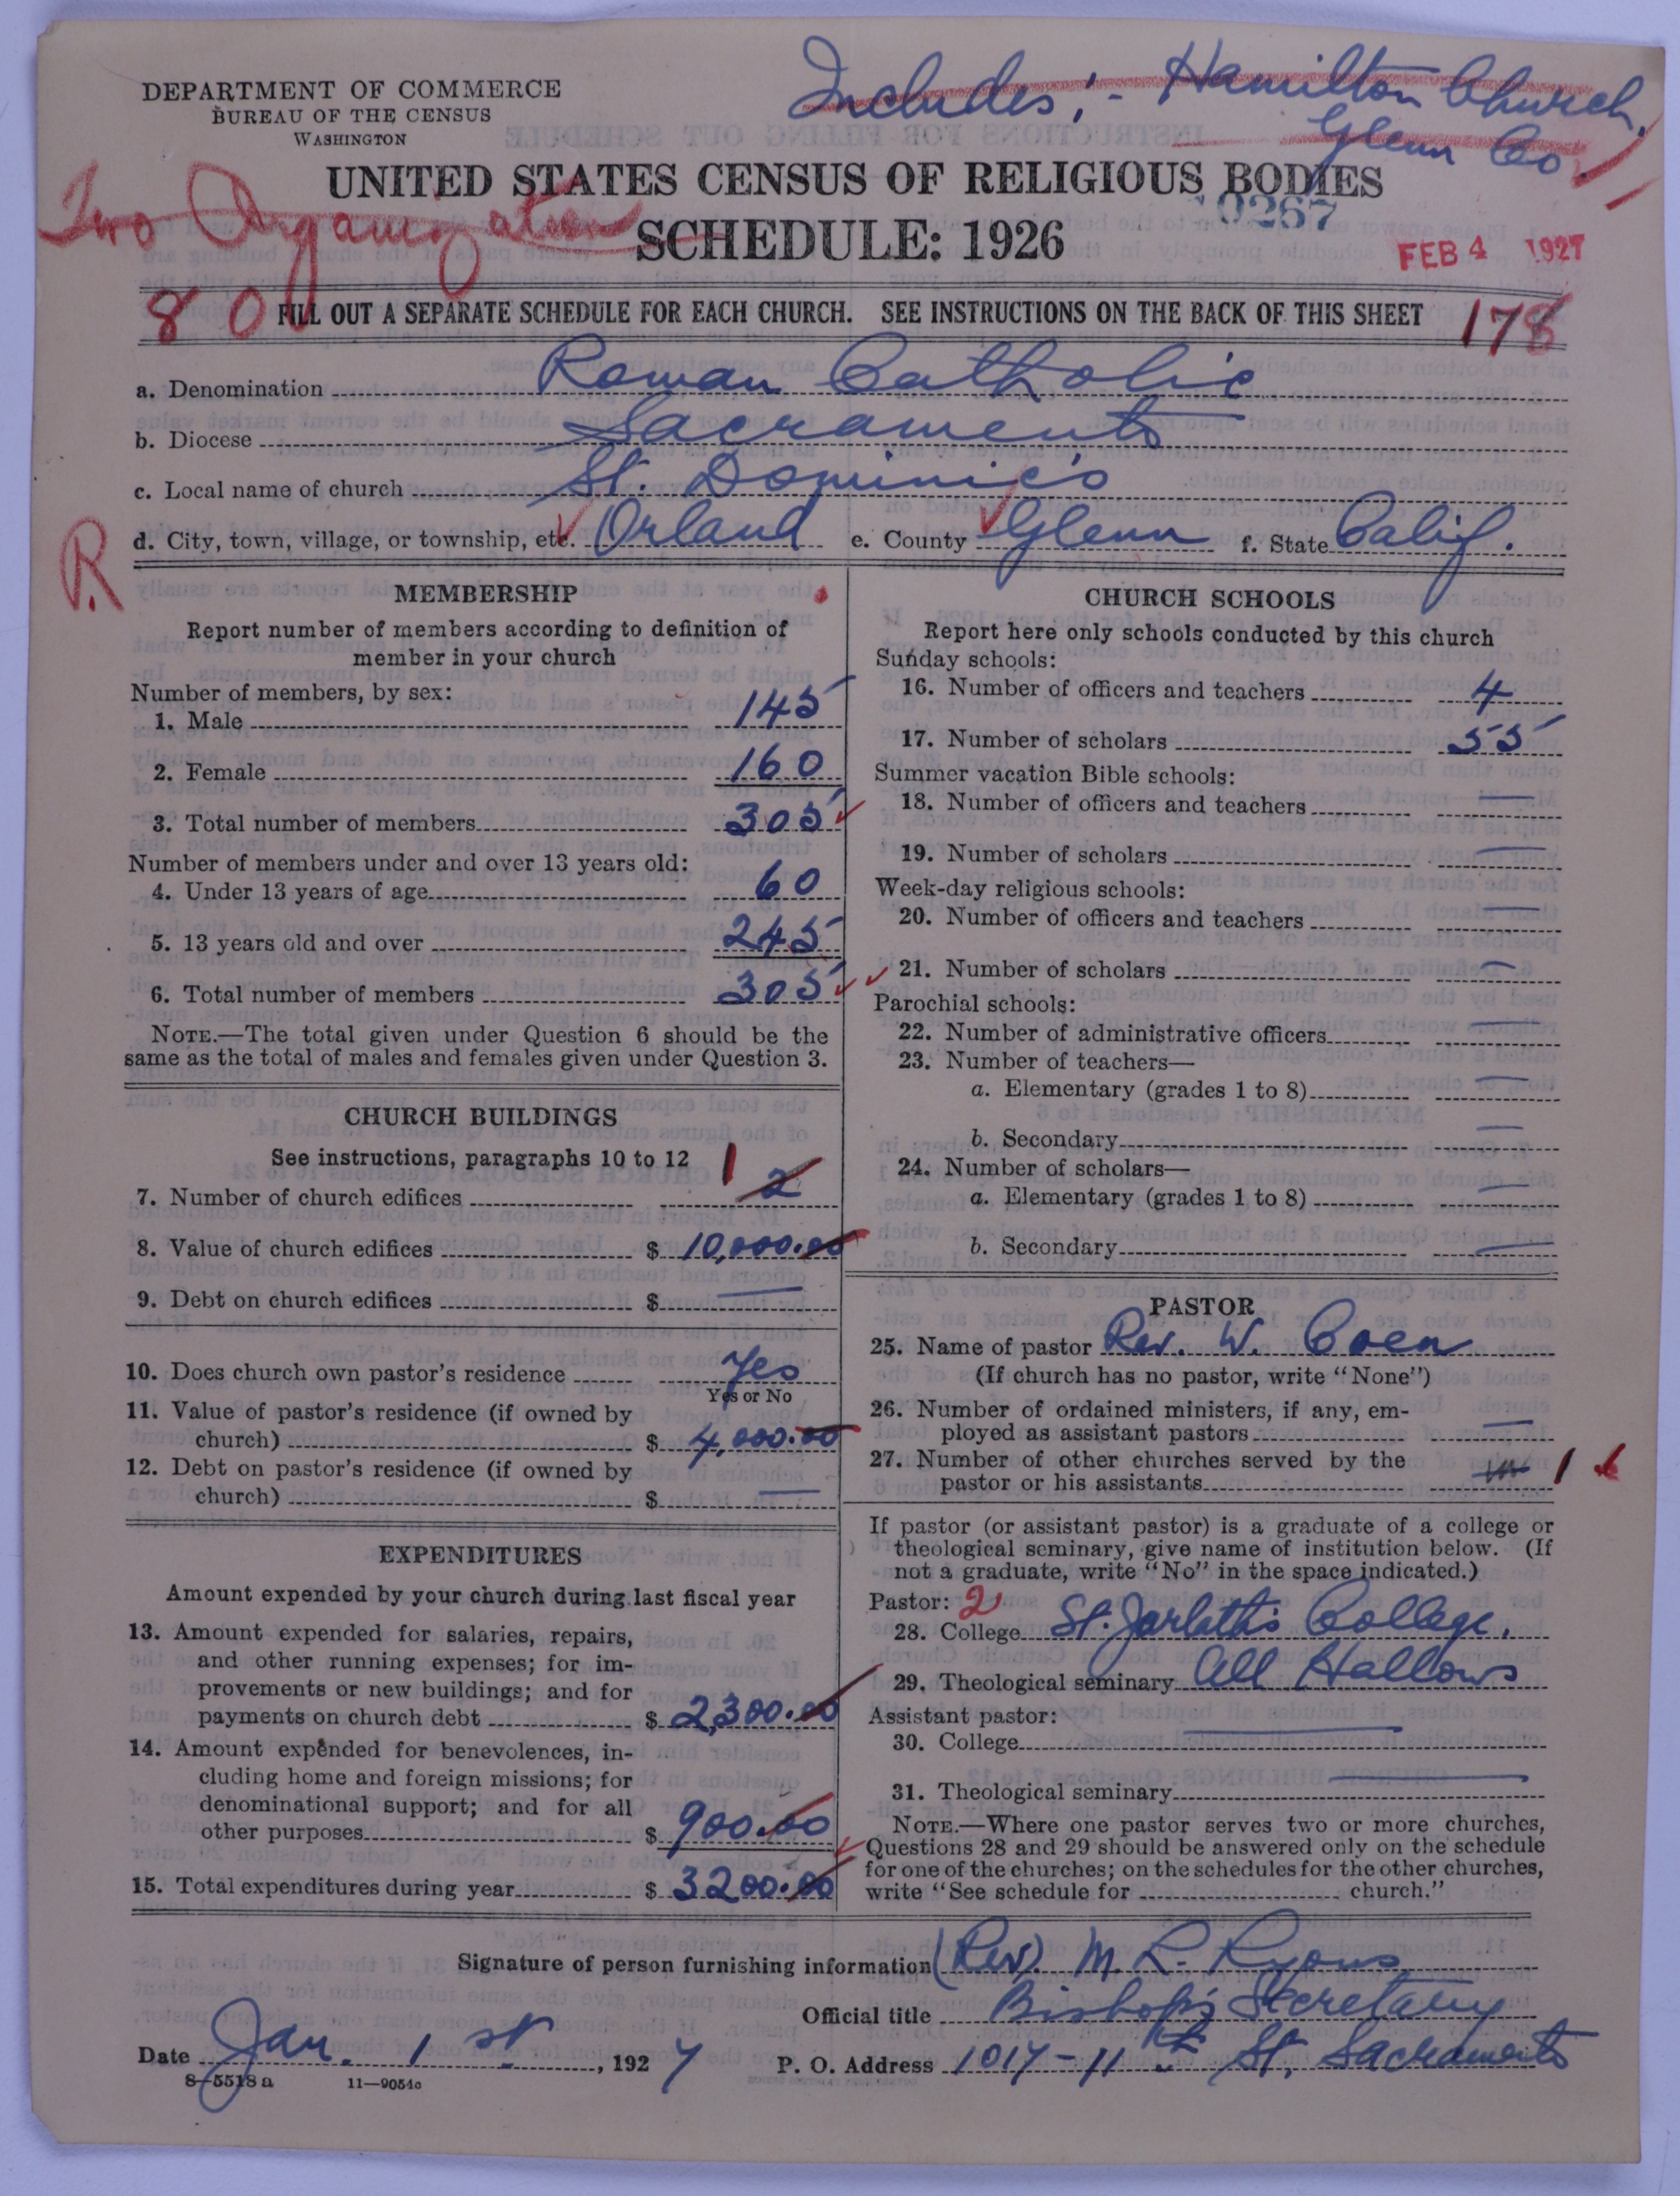 Includes:- Hamilton Church,
Glenn Co.
DEPARTMENT OF COMMERCE
BUREAU OF THE CENSUS
WASHINGTON
UNITED STATES CENSUS OF RELIGIOUS BODIES
Two Organization
SCHEDULE: 1926
FEB 4 1927
80
FILL OUT A SEPARATE SCHEDULE FOR EACH CHURCH. SEE INSTRUCTIONS ON THE BACK OF THIS SHEET
178
a. Denomination Roman Catholic
b. Diocese Sacramento
c. Local name of church St. Dominic's
R
d. City, town, village, or township, etc. Orland e. County Glenn f. State Calif.
MEMBERSHIP
Report number of members according to definition of
member in your church
Number of members, by sex:
1. Male 145
2. Female 160
3. Total number of members 305
Number of members under and over 13 years old:
4. Under 13 years of age 60
5. 13 years old and over 245
6. Total number of members 305
NOTE.—The total given under Question 6 should be the
same as the total of males and females given under Question 3.
CHURCH BUILDINGS
See instructions, paragraphs 10 to 12
7. Number of church edifices 1 2
8. Value of church edifices $ 10,000.00
9. Debt on church edifices $ —
10. Does church own pastor's residence Yes
Yes or No
11. Value of pastor's residence (if owned by
church) $ 4,000.00
12. Debt on pastor's residence (if owned by
church) $ —
EXPENDITURES
Amount expended by your church during last fiscal year
13. Amount expended for salaries, repairs,
and other running expenses; for im-
provements or new buildings; and for
payments on church debt $ 2,300.00
14. Amount expended for benevolences, in-
cluding home and foreign missions; for
denominational support; and for all
other purposes $ 900.00
15. Total expenditures during year $ 3200.00
CHURCH SCHOOLS
Report here only schools conducted by this church
Sunday schools:
16. Number of officers and teachers 4
17. Number of scholars 55
Summer vacation Bible schools:
18. Number of officers and teachers —
19. Number of scholars —
Week-day religious schools:
20. Number of officers and teachers —
21. Number of scholars —
Parochial schools:
22. Number of administrative officers —
23. Number of teachers—
a. Elementary (grades 1 to 8) —
b. Secondary —
24. Number of scholars—
a. Elementary (grades 1 to 8) —
b. Secondary —
PASTOR
25. Name of pastor Rev. W. Coen
(If church has no pastor, write "None")
26. Number of ordained ministers, if any, em-
ployed as assistant pastors —
27. Number of other churches served by the
pastor or his assistants 1
If pastor (or assistant pastor) is a graduate of a college or
theological seminary, give name of institution below. (If
not a graduate, write "No" in the space indicated.)
Pastor: 2
28. College St. Jarlath's College,
29. Theological seminary All Hallows
Assistant pastor:
30. College —
31. Theological seminary —
NOTE.—Where one pastor serves two or more churches,
Questions 28 and 29 should be answered only on the schedule
for one of the churches; on the schedules for the other churches,
write "See schedule for church."
Signature of person furnishing information (Rev). M. L. Ryons
Official title Bishop's Secretary
Date Jan. 1st, 1927 P. O. Address 1017-11th St. Sacramento
8—5518a 11—9054c